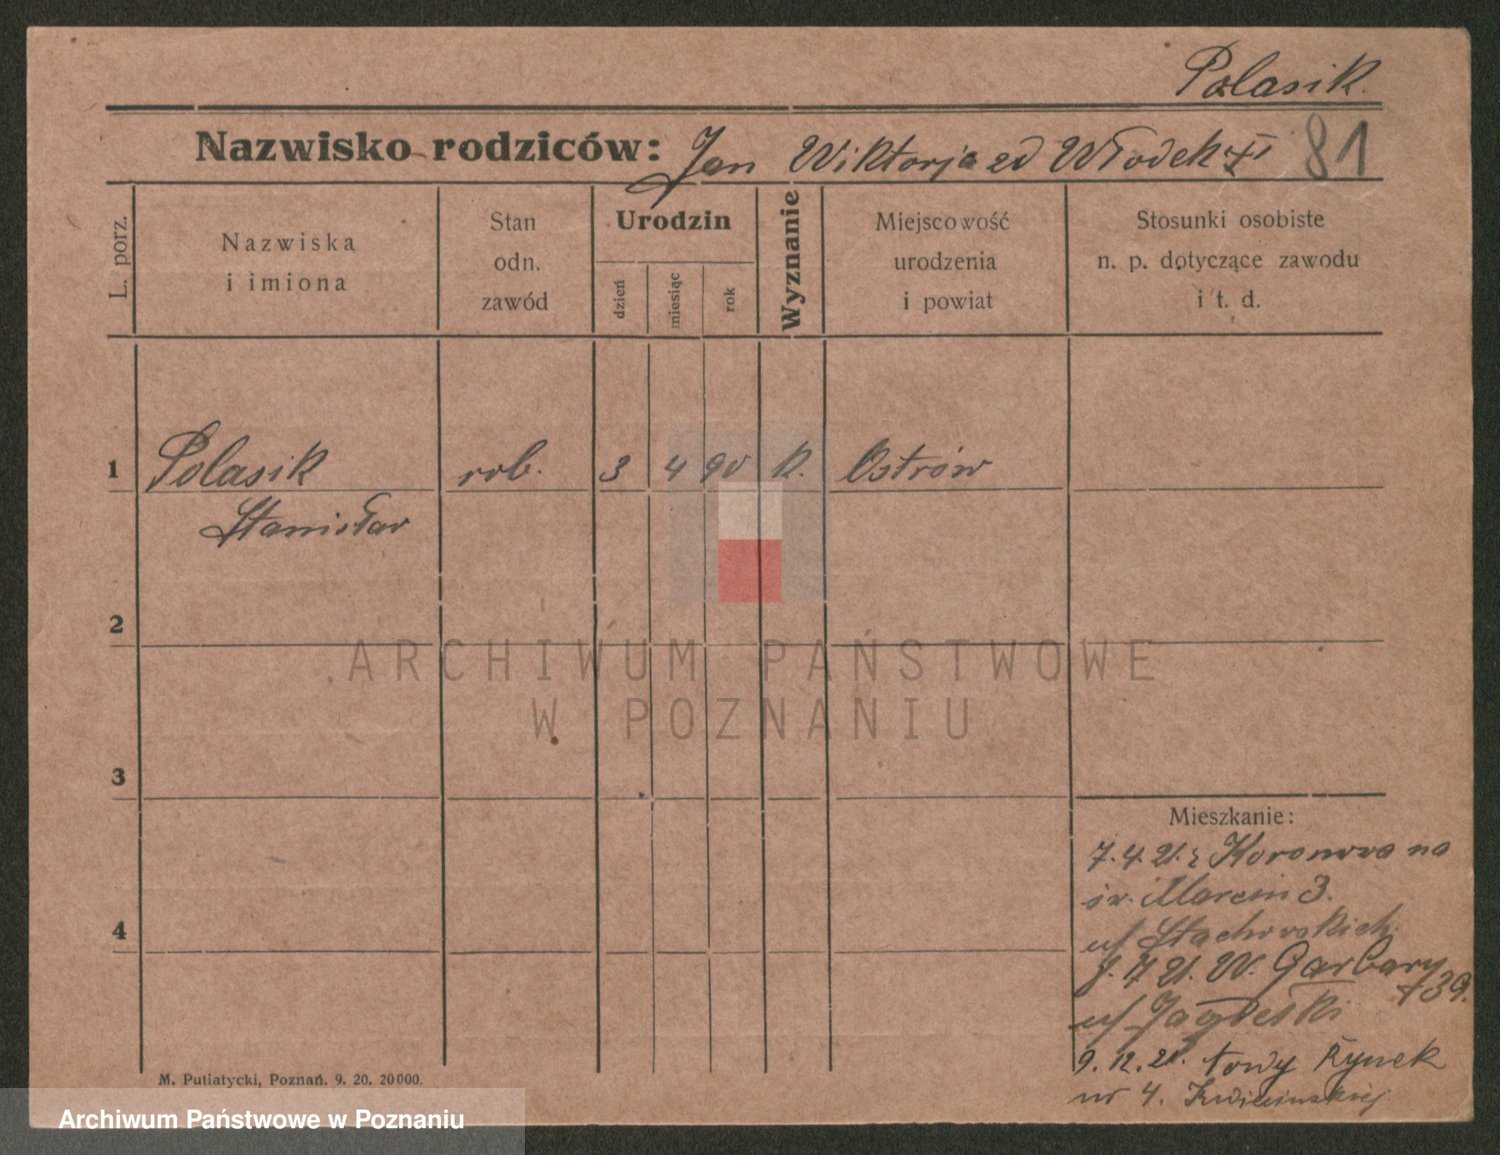 Polasik.
Nazwisko rodziców: Jan Wiktorja zd Włodek 81
L. porz.
Nazwiska
i imiona
Stan
odn.
zawód
Urodzin
dzień
miesiąc
rok
Wyznanie
Miejscowość
urodzenia
i powiat
Stosunki osobiste
n. p. dotyczące zawodu
i t. d.
1 Polasik rob. 3 4 90 k. Ostrów
Stanisław
2
3
4
ARCHIWUM PAŃSTWOWE
W POZNANIU
Mieszkanie:
7.4.21. z Koronowa na
św. Marcin 3.
u/ Stachowskich.
21. W. Garbary
39.
u/
9.12.21. Nowy Rynek
nr 4.
M. Putiatycki, Poznań. 9. 20. 20000.
Archiwum Państwowe w Poznaniu